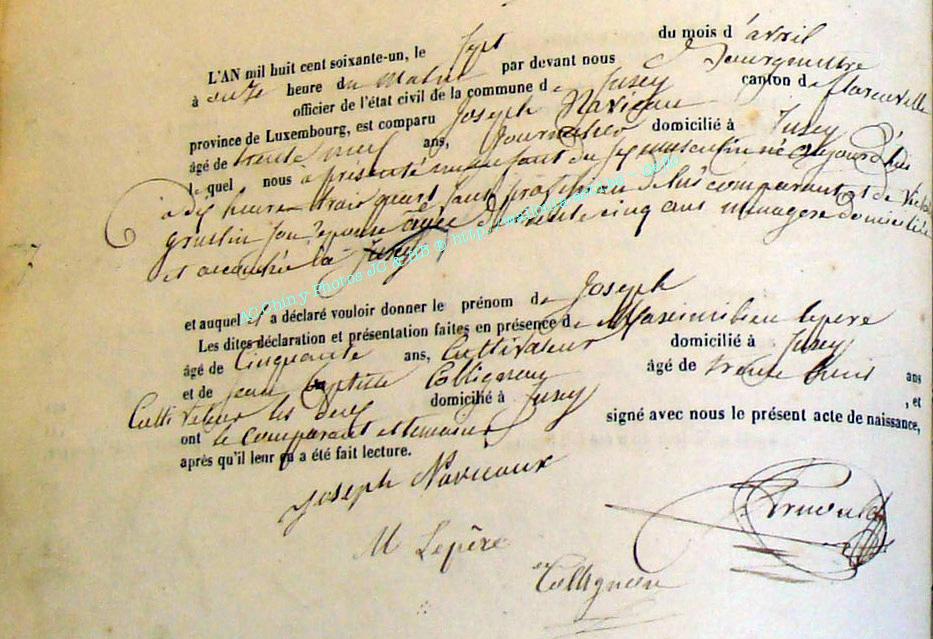 L'AN mil huit cent soixante-un, le sept du mois d'avril
à onze heure du matin par devant nous Bourgmestre
officier de l'état civil de la commune de Jusey canton de florenville
province de Luxembourg, est comparu Joseph Navieau
âgé de trente neuf ans, Journalier domicilié à Jusey
lequel nous a présenté un enfant du sexe masculin né aujourd'hui
à dix heures trois quart sans profession de lui comparant et de
son epouse agée de trente cinq ans menagere domiciliée
et accouchée à Jusey
et auquel il a déclaré vouloir donner le prénom de Joseph
Les dites déclaration et présentation faites en présence de Maximilien lepere
âgé de Cinquante ans, Cultivateur domicilié à Jusey
et de jean Baptiste Collignon âgé de trente ans
Cultivateur domicilié à Jusey , et
ont le comparant et temoins signé avec nous le présent acte de naissance,
après qu'il leur en a été fait lecture.
Joseph Navieaux
M Lepère
Collignon
AC Chiny Photos JC & NB @ http://